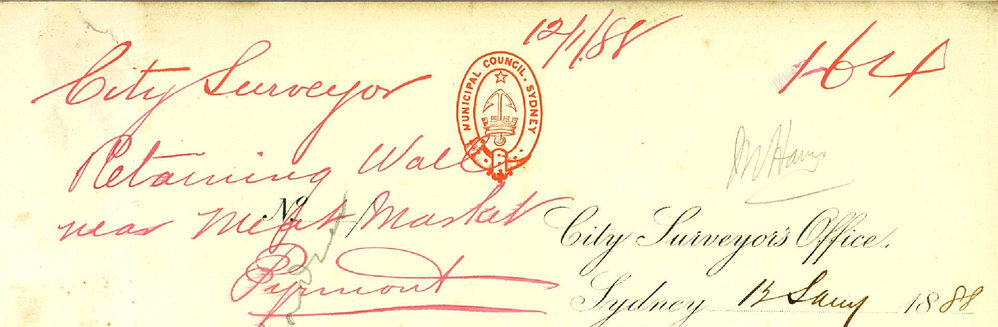 12/1/88
164
City Surveyor
MUNICIPAL COUNCIL. SYDNEY
Retaining Wall
near Meat Market
Pyrmont
No.
City Surveyor's Office.
Sydney 12 Jany 1888